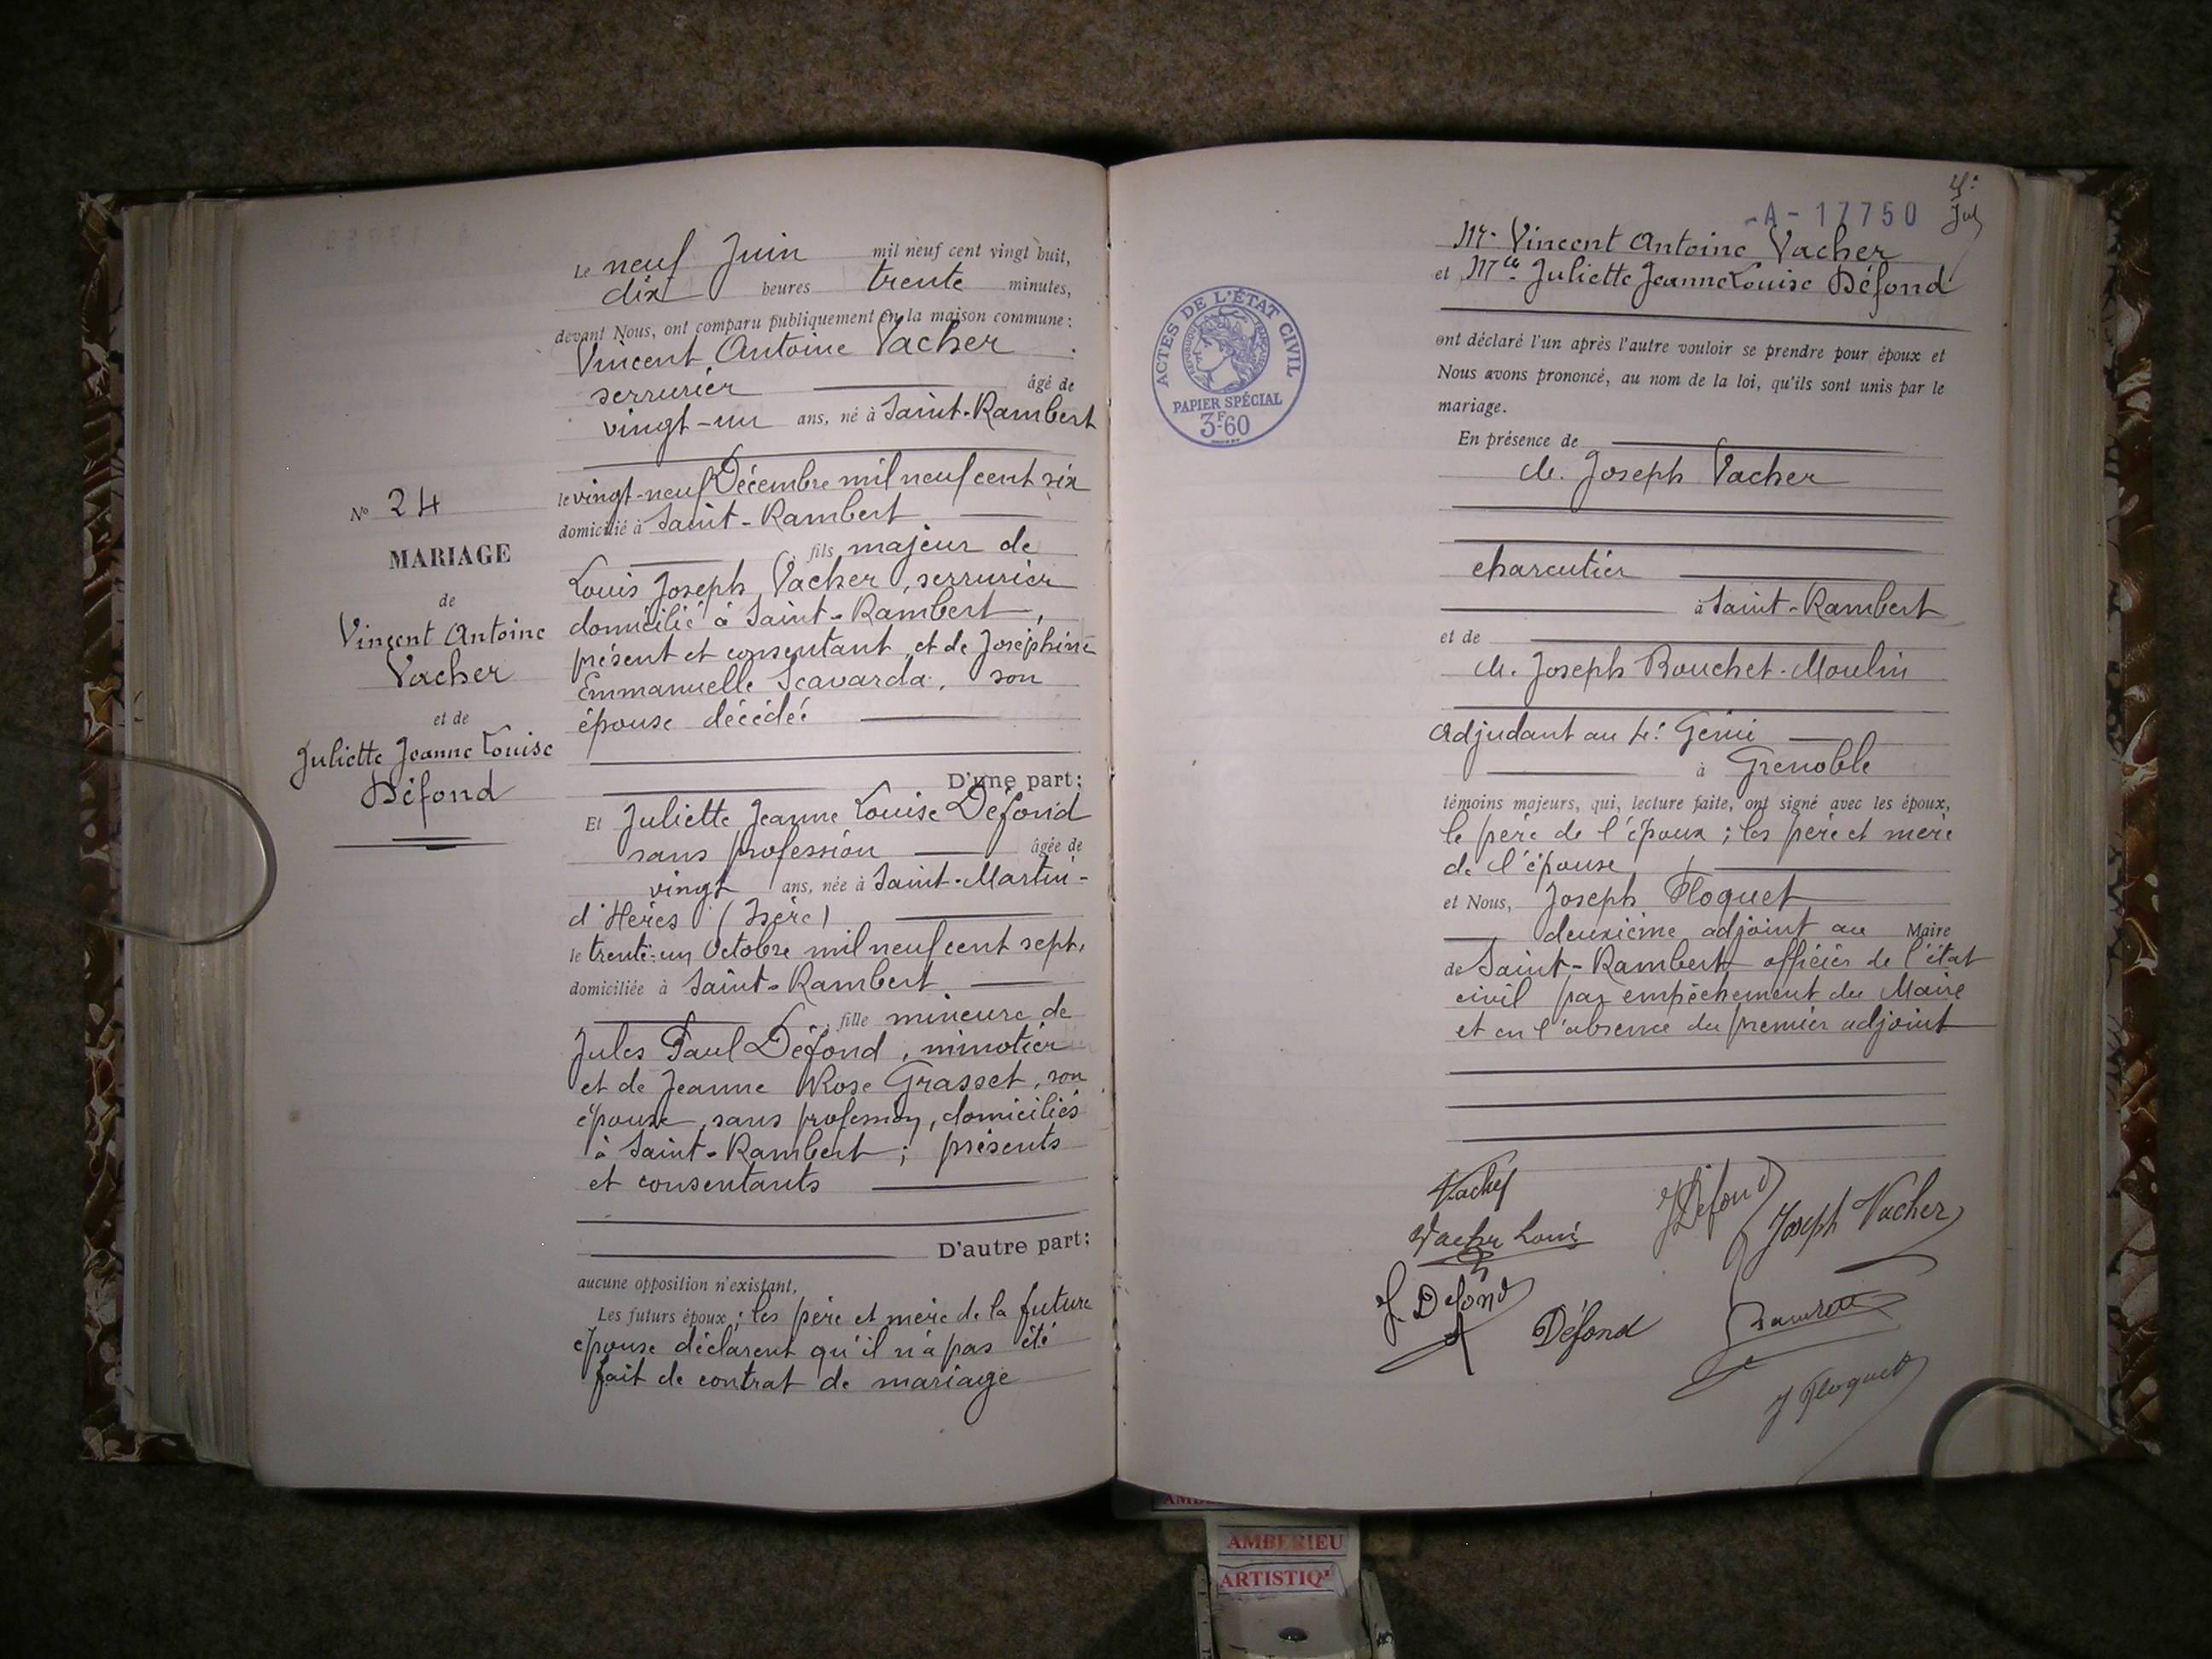 N° 24
MARIAGE
de
Vincent Antoine
Vacher
et de
Juliette Jeanne Louise
Défond
Le neuf Juin mil neuf cent vingt huit,
dix heures trente minutes,
devant Nous, ont comparu publiquement en la maison commune:
Vincent Antoine Vacher
serrurier âgé de
vingt-un ans, né à Saint-Rambert
le vingt-neuf Décembre mil neuf cent six
domicilié à Saint-Rambert
fils majeur de
Louis Joseph Vacher, serrurier
domicilié à Saint-Rambert,
présent et consentant, et de Joséphine
Emmanuelle Scavarda, son
épouse décédée
D'une part:
Et Juliette Jeanne Louise Défond
sans profession âgée de
vingt ans, née à Saint-Martin-
d'Hères (Isère)
le trente-un Octobre mil neuf cent sept,
domiciliée à Saint-Rambert
fille mineure de
Jules Paul Défond, minotier
et de Jeanne Rose Grasset, son
épouse, sans profession, domiciliés
à Saint-Rambert; présents
et consentants
D'autre part:
aucune opposition n'existant,
Les futurs époux; les père et mère de la future
épouse déclarent qu'il n'a pas été
fait de contrat de mariage
-A-17750
ACTES DE L'ÉTAT CIVIL
RÉPUBLIQUE FRANÇAISE
PAPIER SPÉCIAL
3F60
Mr. Vincent Antoine Vacher
et Mlle Juliette Jeanne Louise Défond
ont déclaré l'un après l'autre vouloir se prendre pour époux et
Nous avons prononcé, au nom de la loi, qu'ils sont unis par le
mariage.
En présence de
M. Joseph Vacher
charcutier
à Saint-Rambert
et de
M. Joseph Bouchet-Moulin
Adjudant au 4e Génie
à Grenoble
témoins majeurs, qui, lecture faite, ont signé avec les époux,
le père de l'époux; les père et mère
de l'épouse
et Nous, Joseph Floquet
deuxième adjoint au Maire
de Saint-Rambert officier de l'état
civil par empêchement du Maire
et en l'absence du premier adjoint
Vacher
J Défond
Joseph Vacher
Vacher Louis
J. Defond
Défond
J Floquet
AMBERIEU
ARTISTIQ